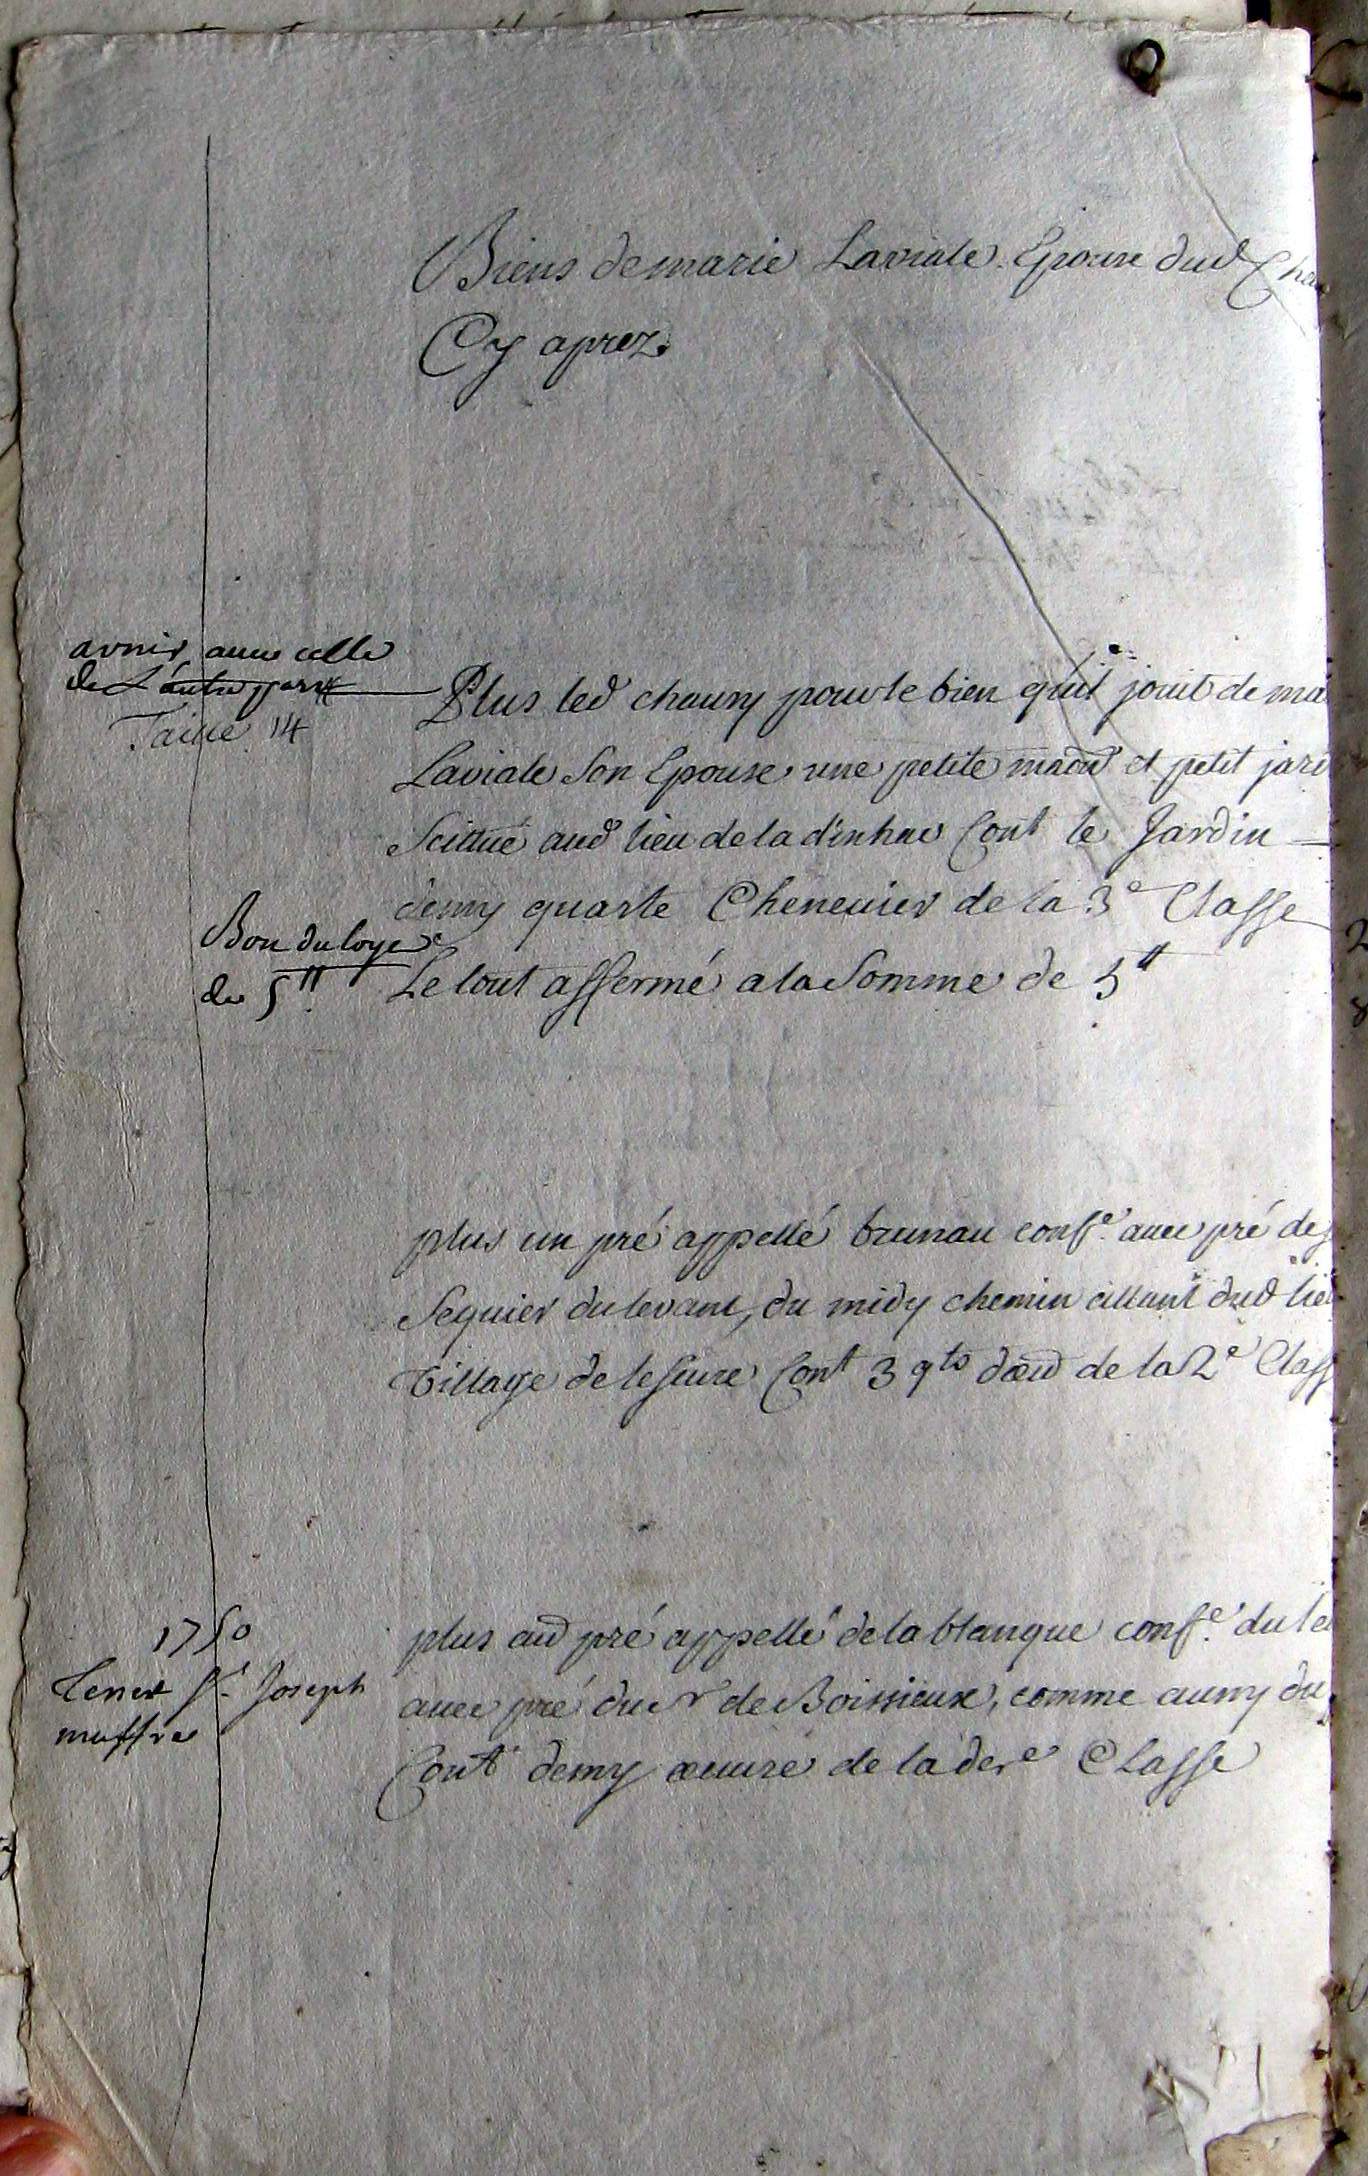 Biens de marie Laviale Epouse dud Chau
Cy aprez.
avnir avec celle
de L'autre part
Taille 14
Plus led chauvy pour le bien qu'il jouit de ma
Laviale Son Epouse une petite maon et petit jard
Scittué aud lieu de ladinhac Cont le Jardin
demy quarte Chenevier de la 3e Classe
Bon du loyer
de 5tt
Le tout affermé a la Somme de 5tt
plus un pré appellé brunau conf.e avec pré de
Seguier du levant, du midy chemin allant dud lieu
village de Cont 3 qts d'œu de la 2e Class
1750
Tenet Sr Joseph
maffre
plus aud pré appellé de la blanque conf.e du le
avec pré du Sr de Boissieux, comme aussy du
Cont demy œuvre de la dere Classe